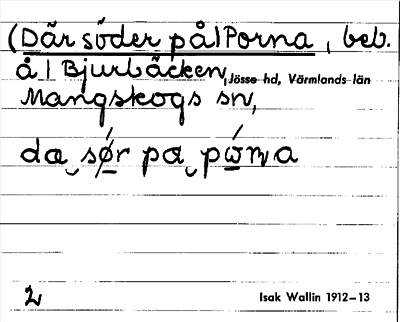 (Där söder på) Porna, beb.
å) Bjurbäcken, Jösse hd, Värmlands län
Mangskogs sn,
da‿sǿr pa‿pώꞃa
2 Isak Wallin 1912–13